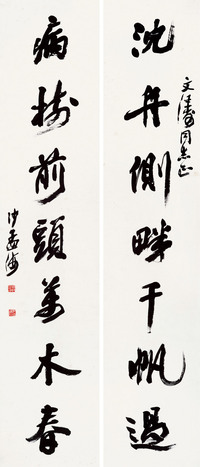 文濤同志正
沈舟側畔千帆過
病樹前頭萬木春
沙孟海